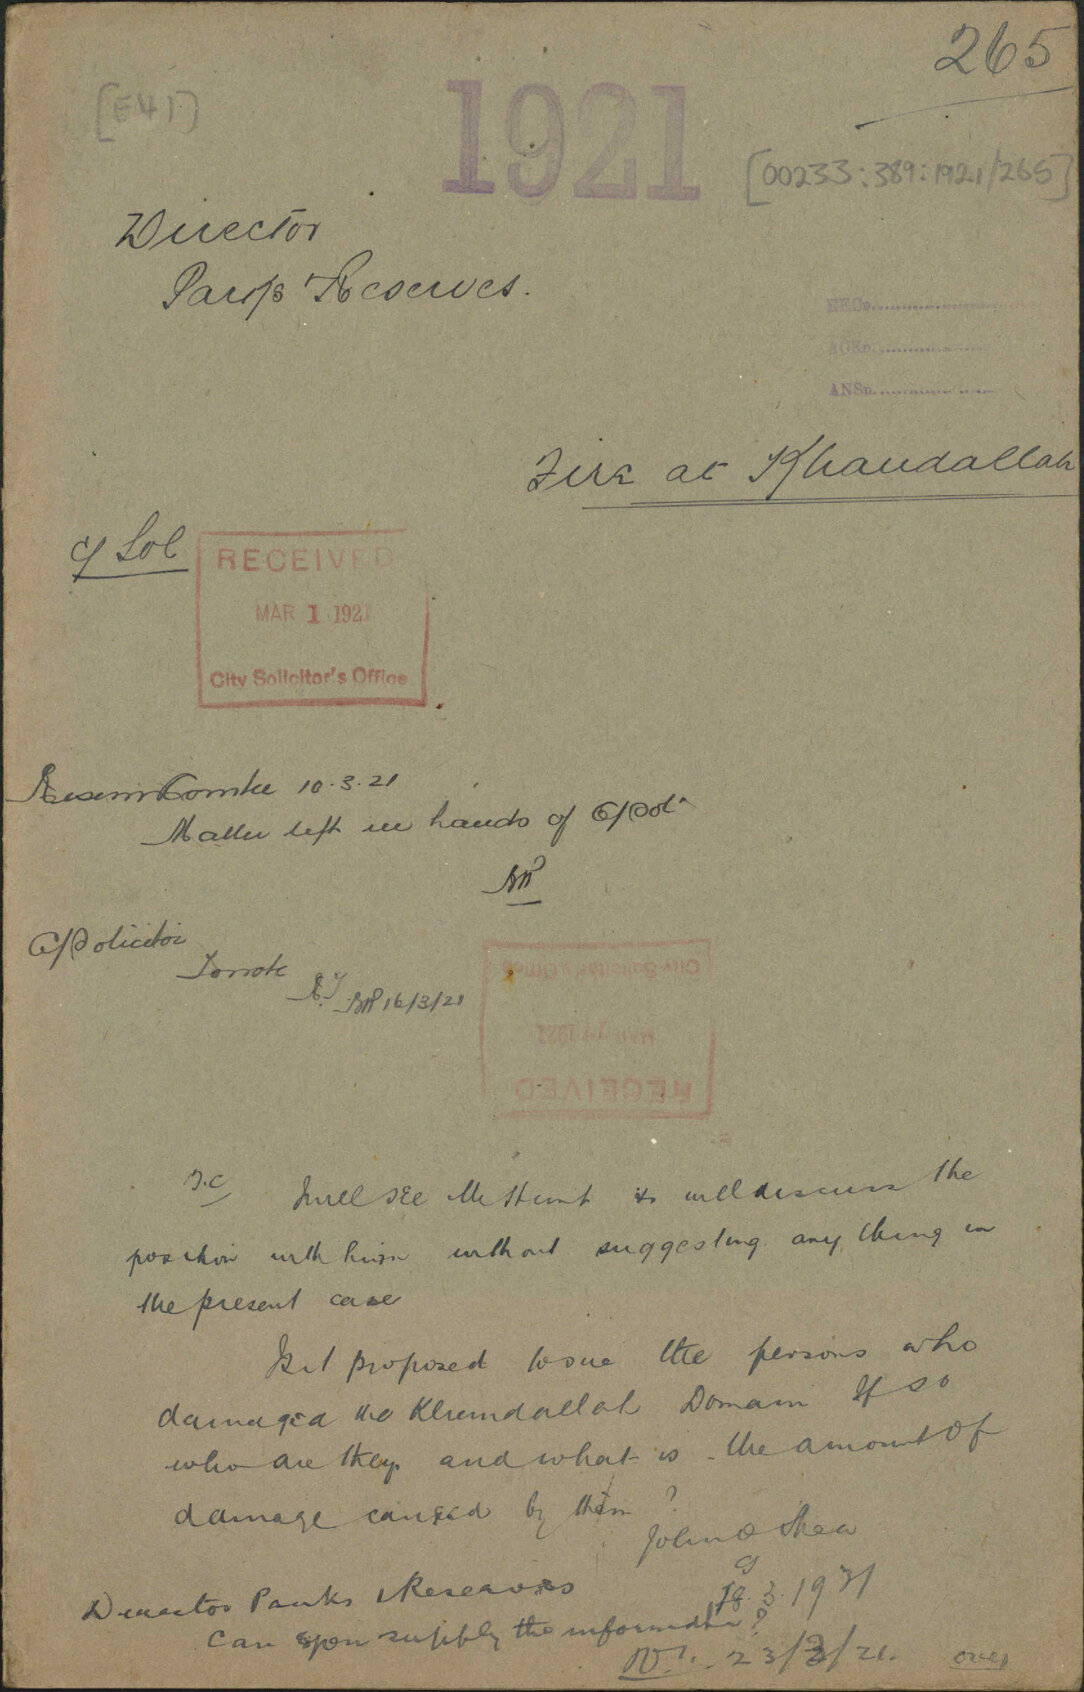 265
[E41]
1921
[00233:389:1921/265]
Director
Parks Reserves.
RECD.
ACKD.
ANSD.
Fire at Khandallah
C/ Sol
RECEIVED
MAR 1 1921
City Solicitor's Office
Reserves Comtee 10.3.21
Matter left in hands of C/Solr
C/Solicitor
To note
16/3/21
City Solicitor's Office
MAR 1921
RECEIVED
T.C I will see Mr Hunt & will discuss the
position with him without suggesting any thing in
the present case
Is it proposed to sue the persons who
damaged the Khandallah Domain If so
who are they and what is the amount of
damage caused by them?
John O Shea
CS
18.3.1921
Director Parks & Reserves
Can you supply the information?
23/3/21.
over